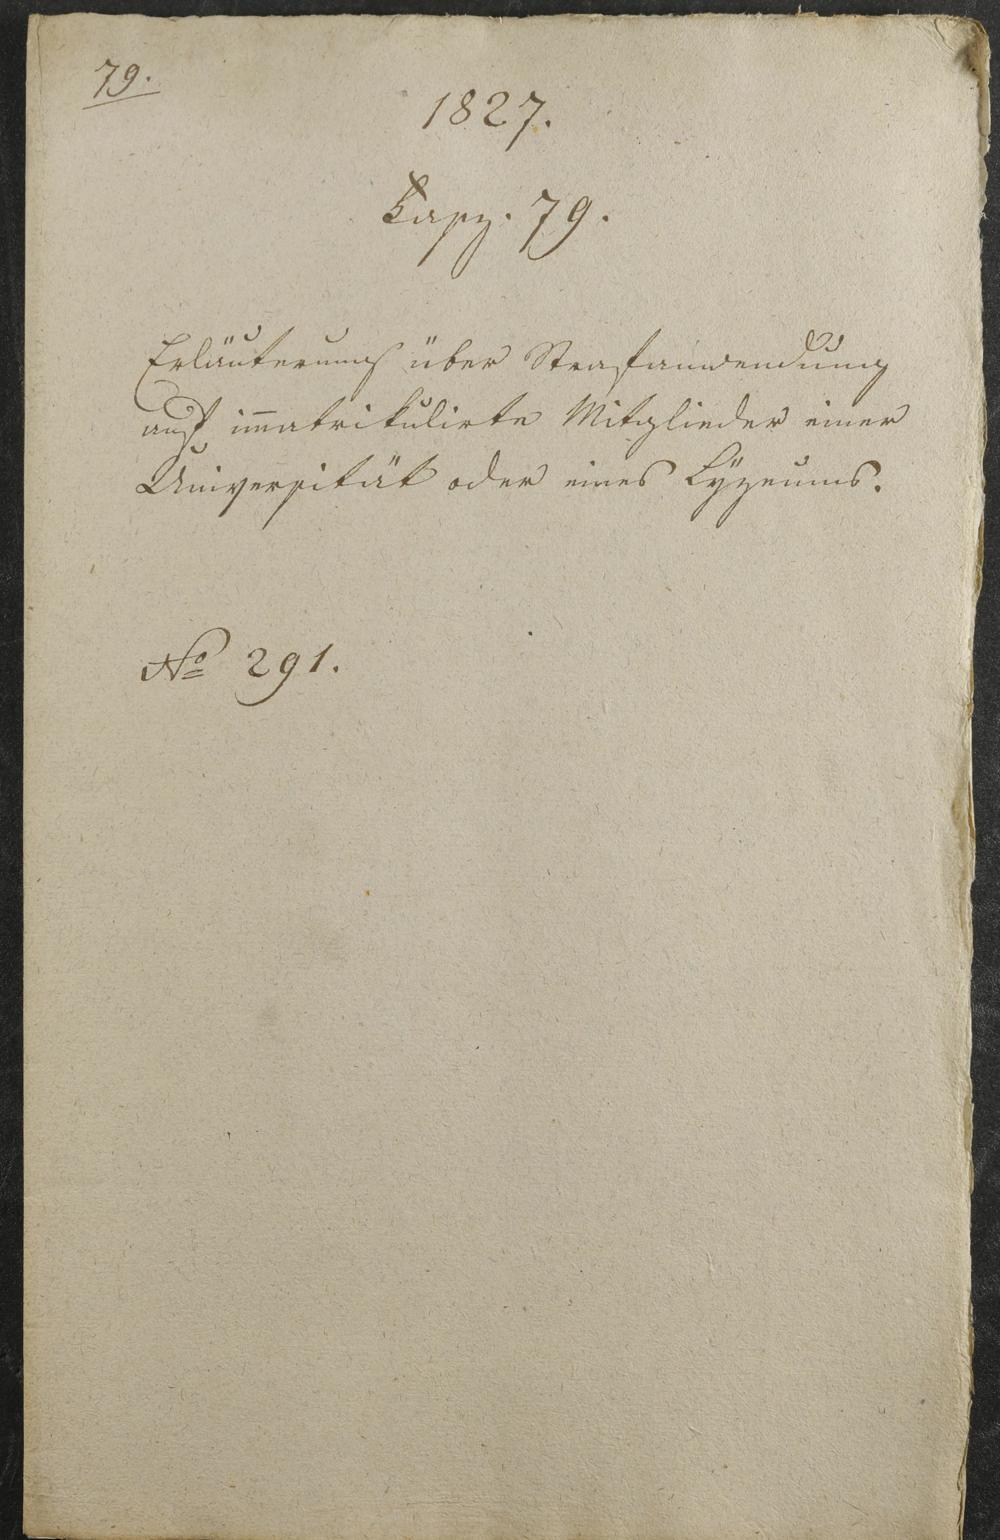 79.
1827.
Fasz. 79.
Erläuterung über Strafanwendung
auf im̅atrikulirte Mitglieder einer
Universität oder eines Lÿzeums.
No 291.